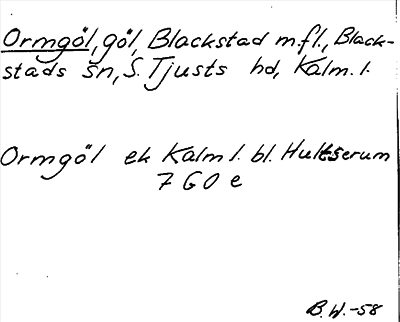 Ormgöl, göl, Blackstad m.fl., Black-
stads sn, S. Tjusts hd, Kalm. l.
Ormgöl ek Kalm l. bl. Hultserum
7 G O e
B. W. -58